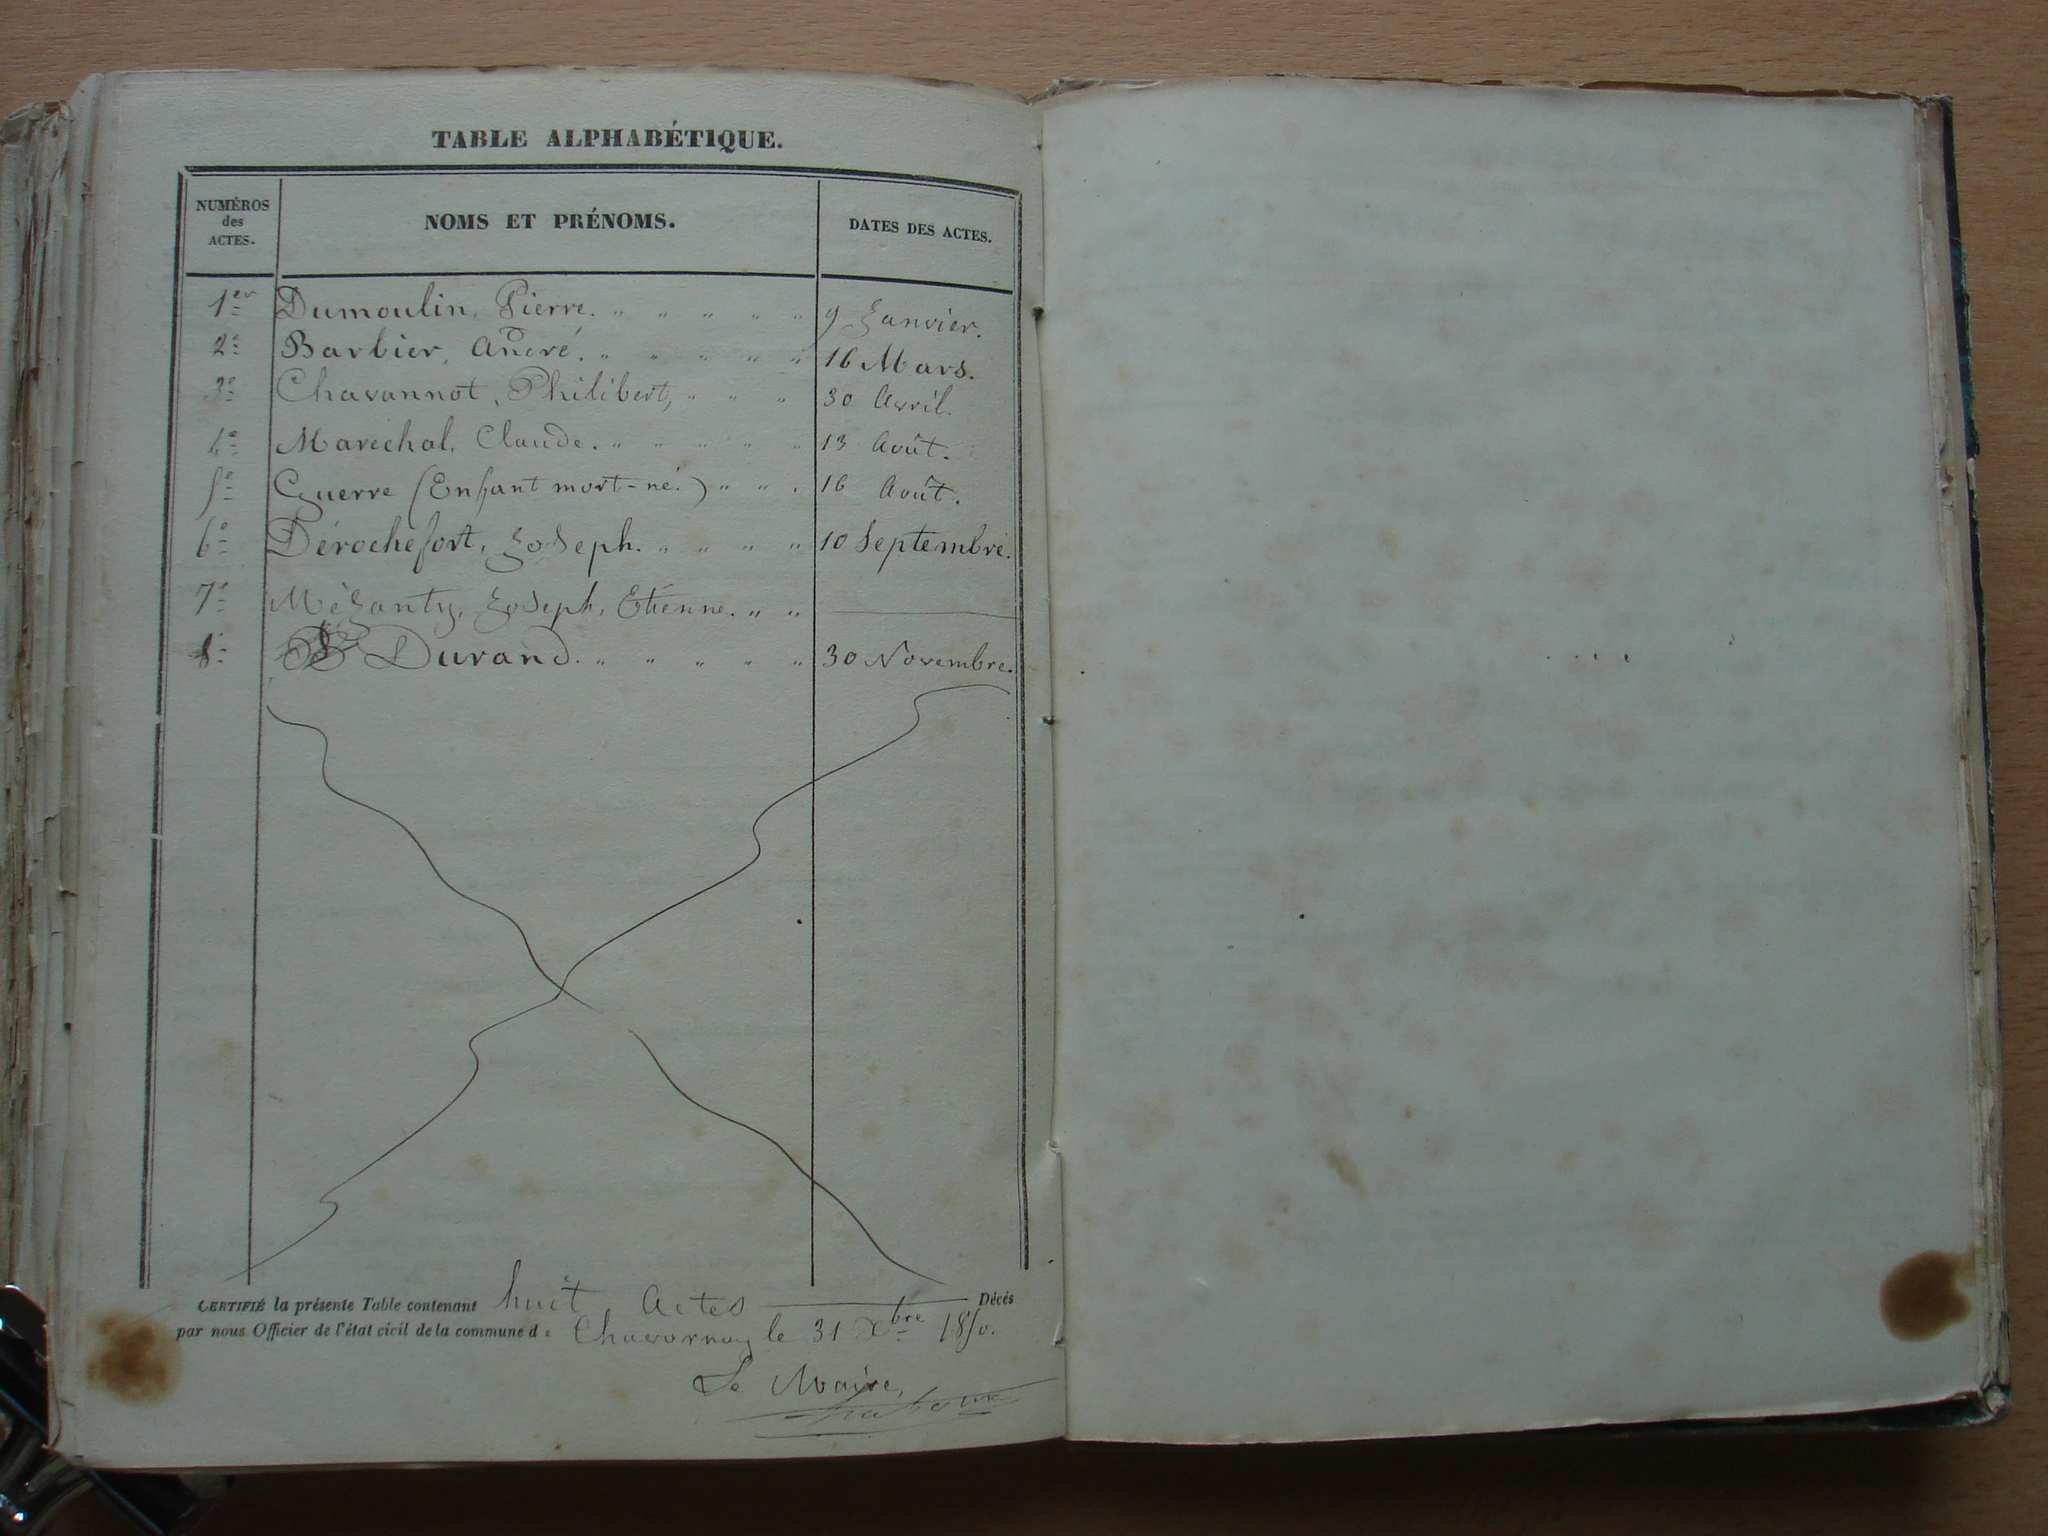 TABLE ALPHABÉTIQUE.
NUMÉROS des ACTES. NOMS ET PRÉNOMS. DATES DES ACTES.
1er Dumoulin, Pierre. „ „ „ „ „ 9 Janvier.
2e Barbier, André. „ „ „ „ „ 16 Mars.
3e Chavannot, Philibert, „ „ „ 30 Avril.
4e Maréchal, Claude. „ „ „ „ „ 13 Août.
5e Guerre (Enfant mort-né.) „ „ „ 16 Août.
6e Dérochefort, Joseph. „ „ „ „ 10 Septembre.
7e Joseph, Etienne. „ „
8e Durand. „ „ „ „ „ 30 Novembre.
CERTIFIÉ la présente Table contenant huit Actes Décés
par nous Officier de l'état civil de la commune de Chavornay le 31 Xbre 1850.
Le Maire,